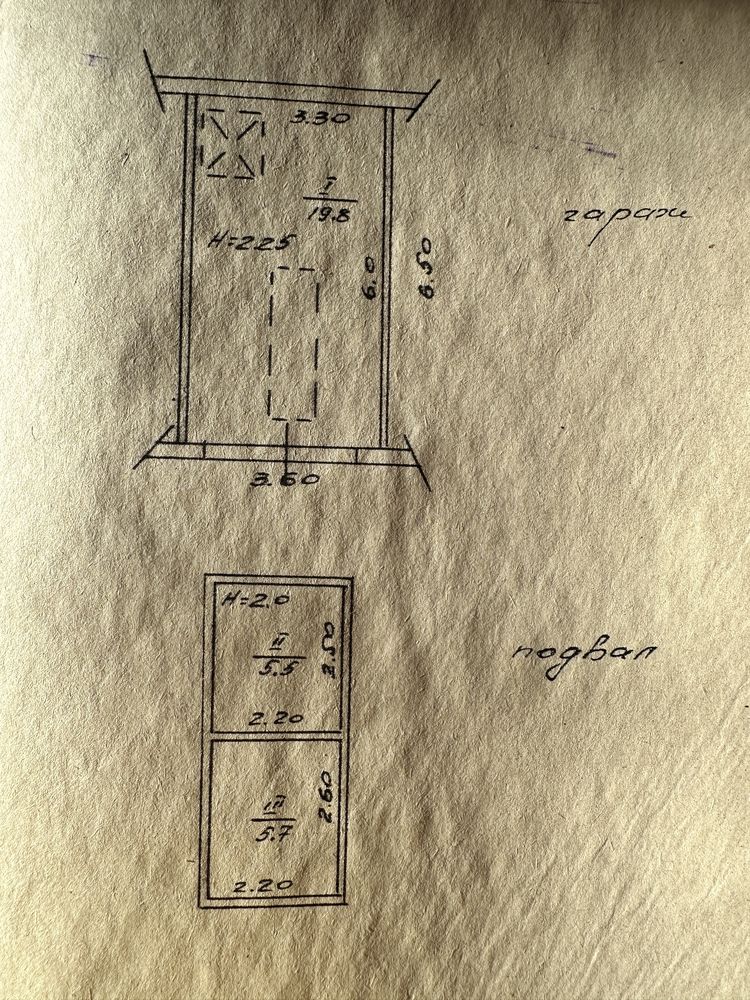 3.30
I
19.8
гараж
H=225
6.0
6.50
3.60
H=2.0
II
5.5
2.50
подвал
2.20
III
5.7
2.60
2.20